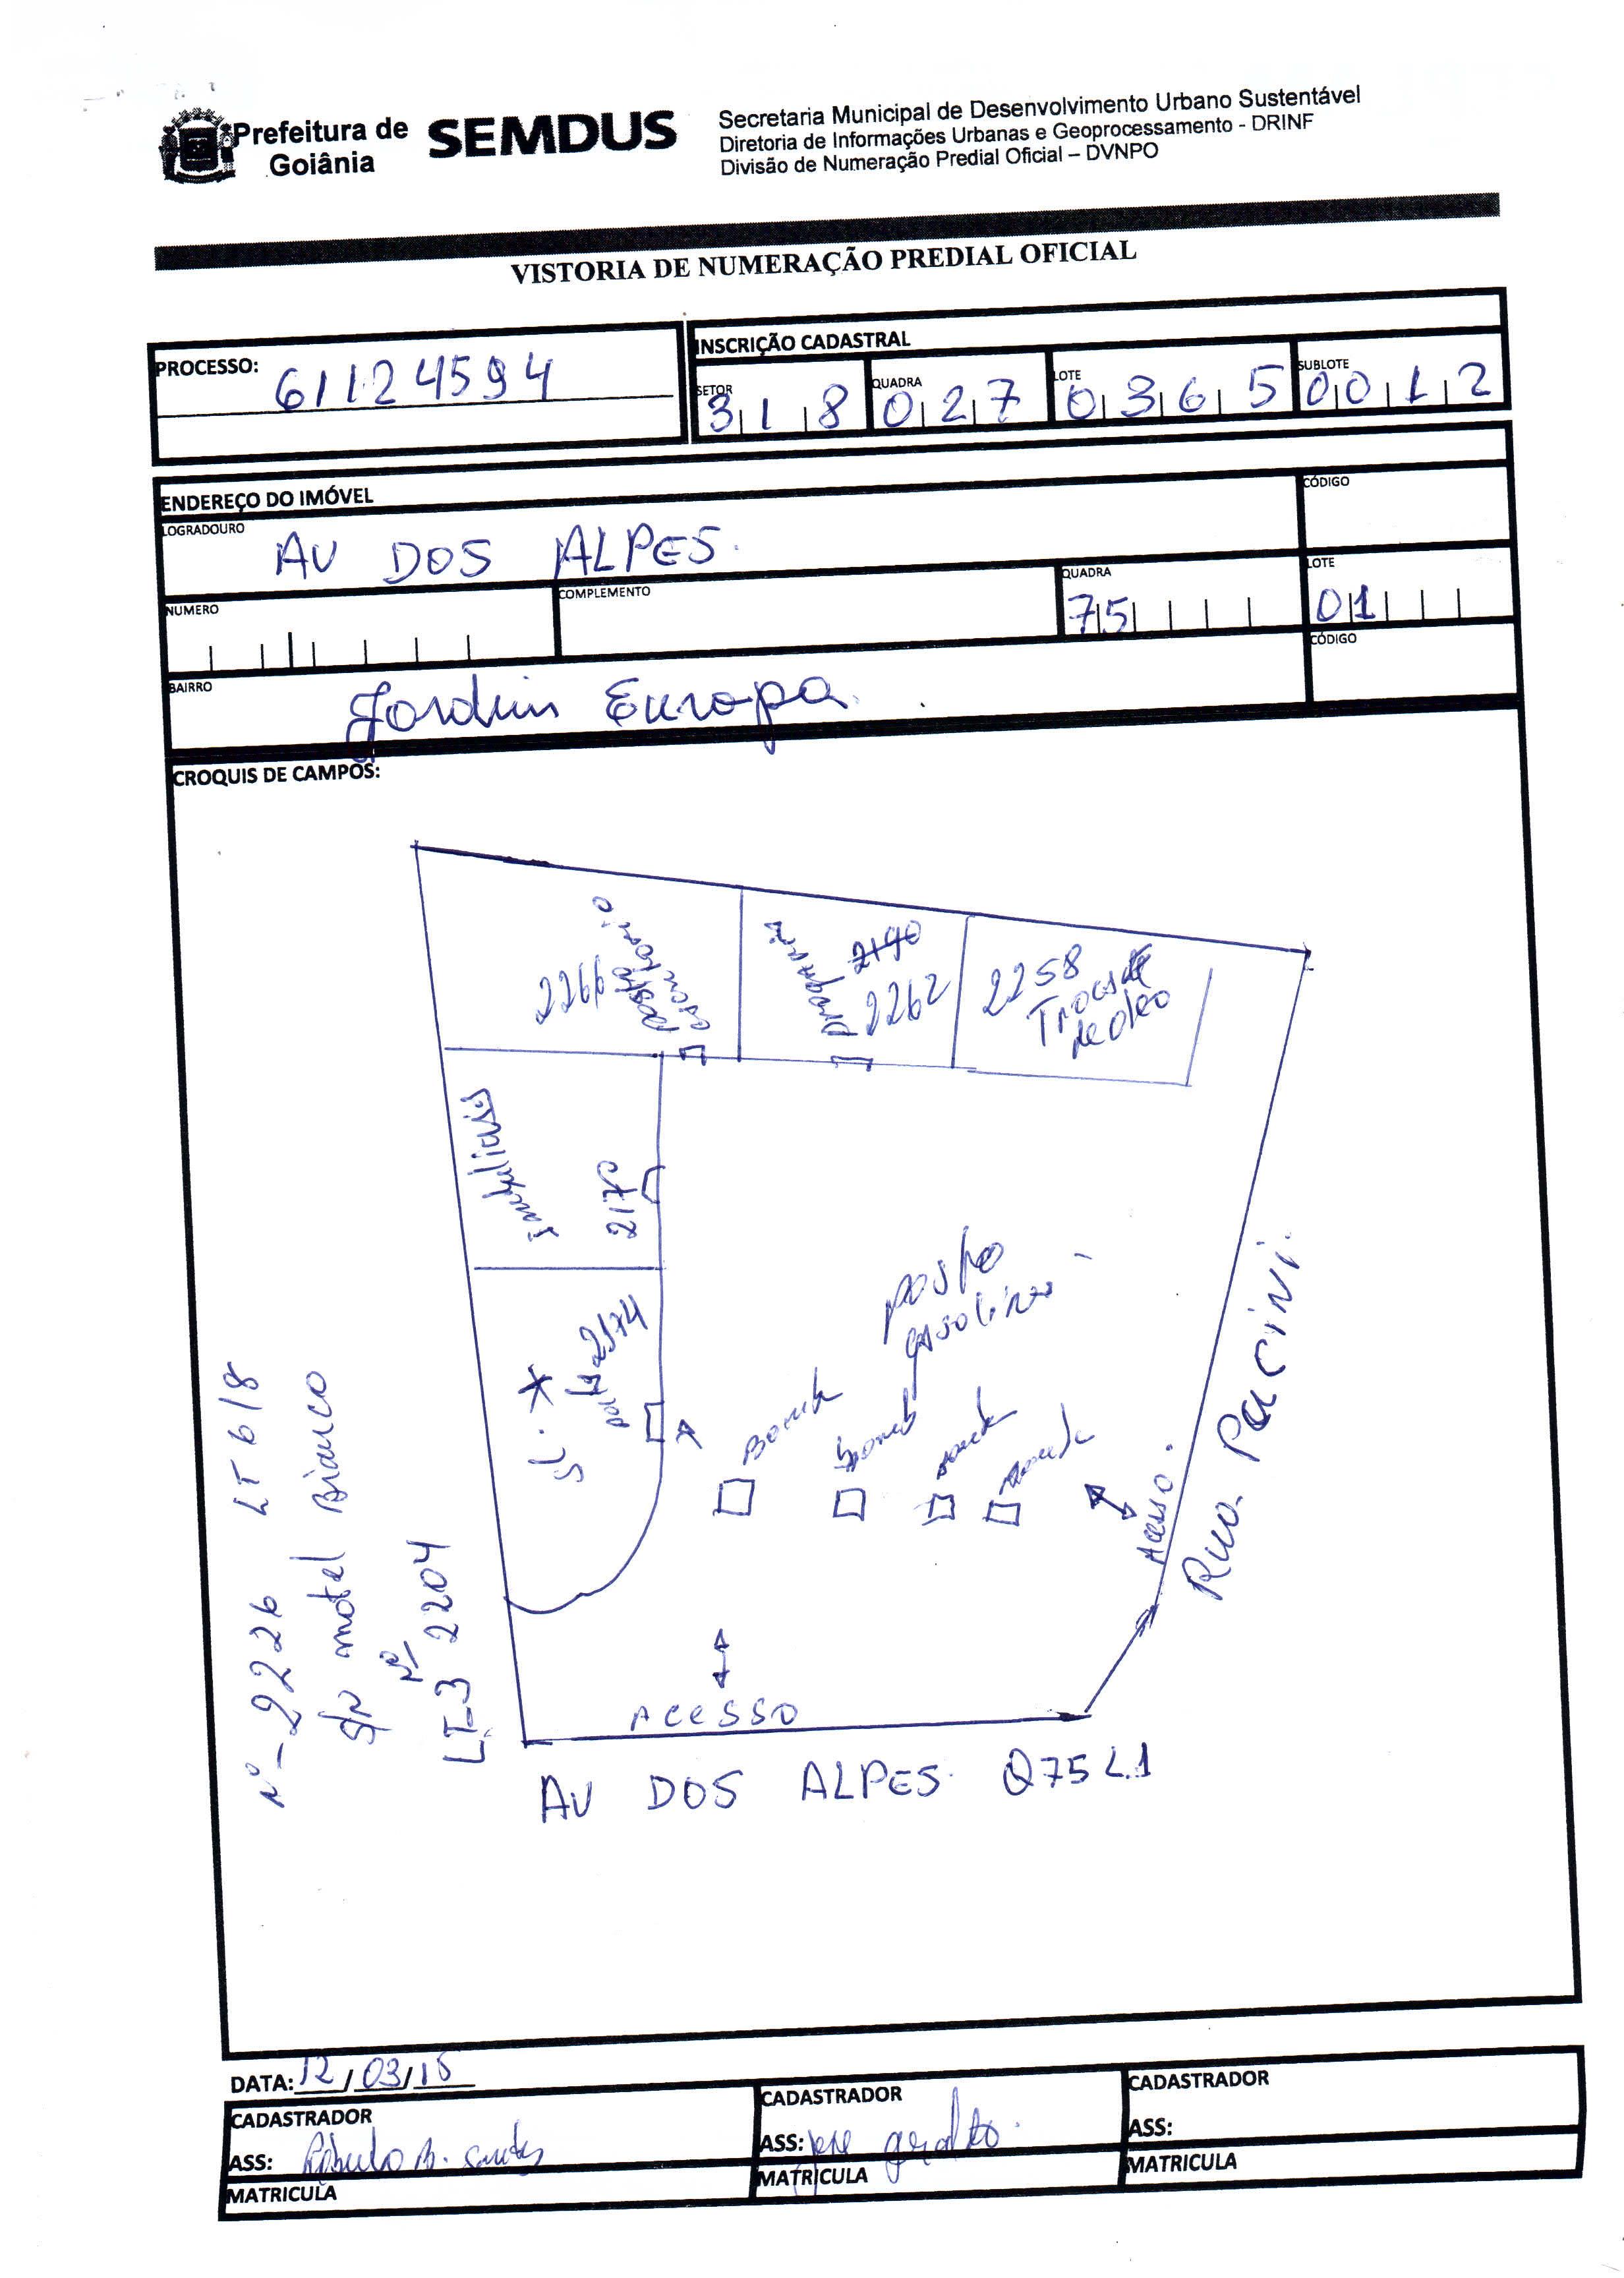 Prefeitura de
Goiânia
SEMDUS
Secretaria Municipal de Desenvolvimento Urbano Sustentável
Diretoria de Informações Urbanas e Geoprocessamento - DRINF
Divisão de Numeração Predial Oficial – DVNPO
VISTORIA DE NUMERAÇÃO PREDIAL OFICIAL
PROCESSO: 61124594
INSCRIÇÃO CADASTRAL
SETOR 318 QUADRA 027 LOTE 0365 SUBLOTE 0012
ENDEREÇO DO IMÓVEL
LOGRADOURO AV DOS ALPES.
CÓDIGO
NUMERO
COMPLEMENTO
QUADRA 75
LOTE 01
BAIRRO Jardim Europa.
CÓDIGO
CROQUIS DE CAMPOS:
2266
posto
escritorio
2190
2262
2258
Trocas de
de oleo
2170
SL. *
2174
posto
gasolina
Bomb
Acesso.
Rua Pacini.
Nº - 2226 LT 6/8
S/N motel Bianco
Nº
LT-3 2204
ACESSO
AV DOS ALPES Q75 L1
DATA: 12/03/15
CADASTRADOR
ASS:
MATRICULA
CADASTRADOR
ASS: jose geraldo.
MATRICULA
CADASTRADOR
ASS:
MATRICULA